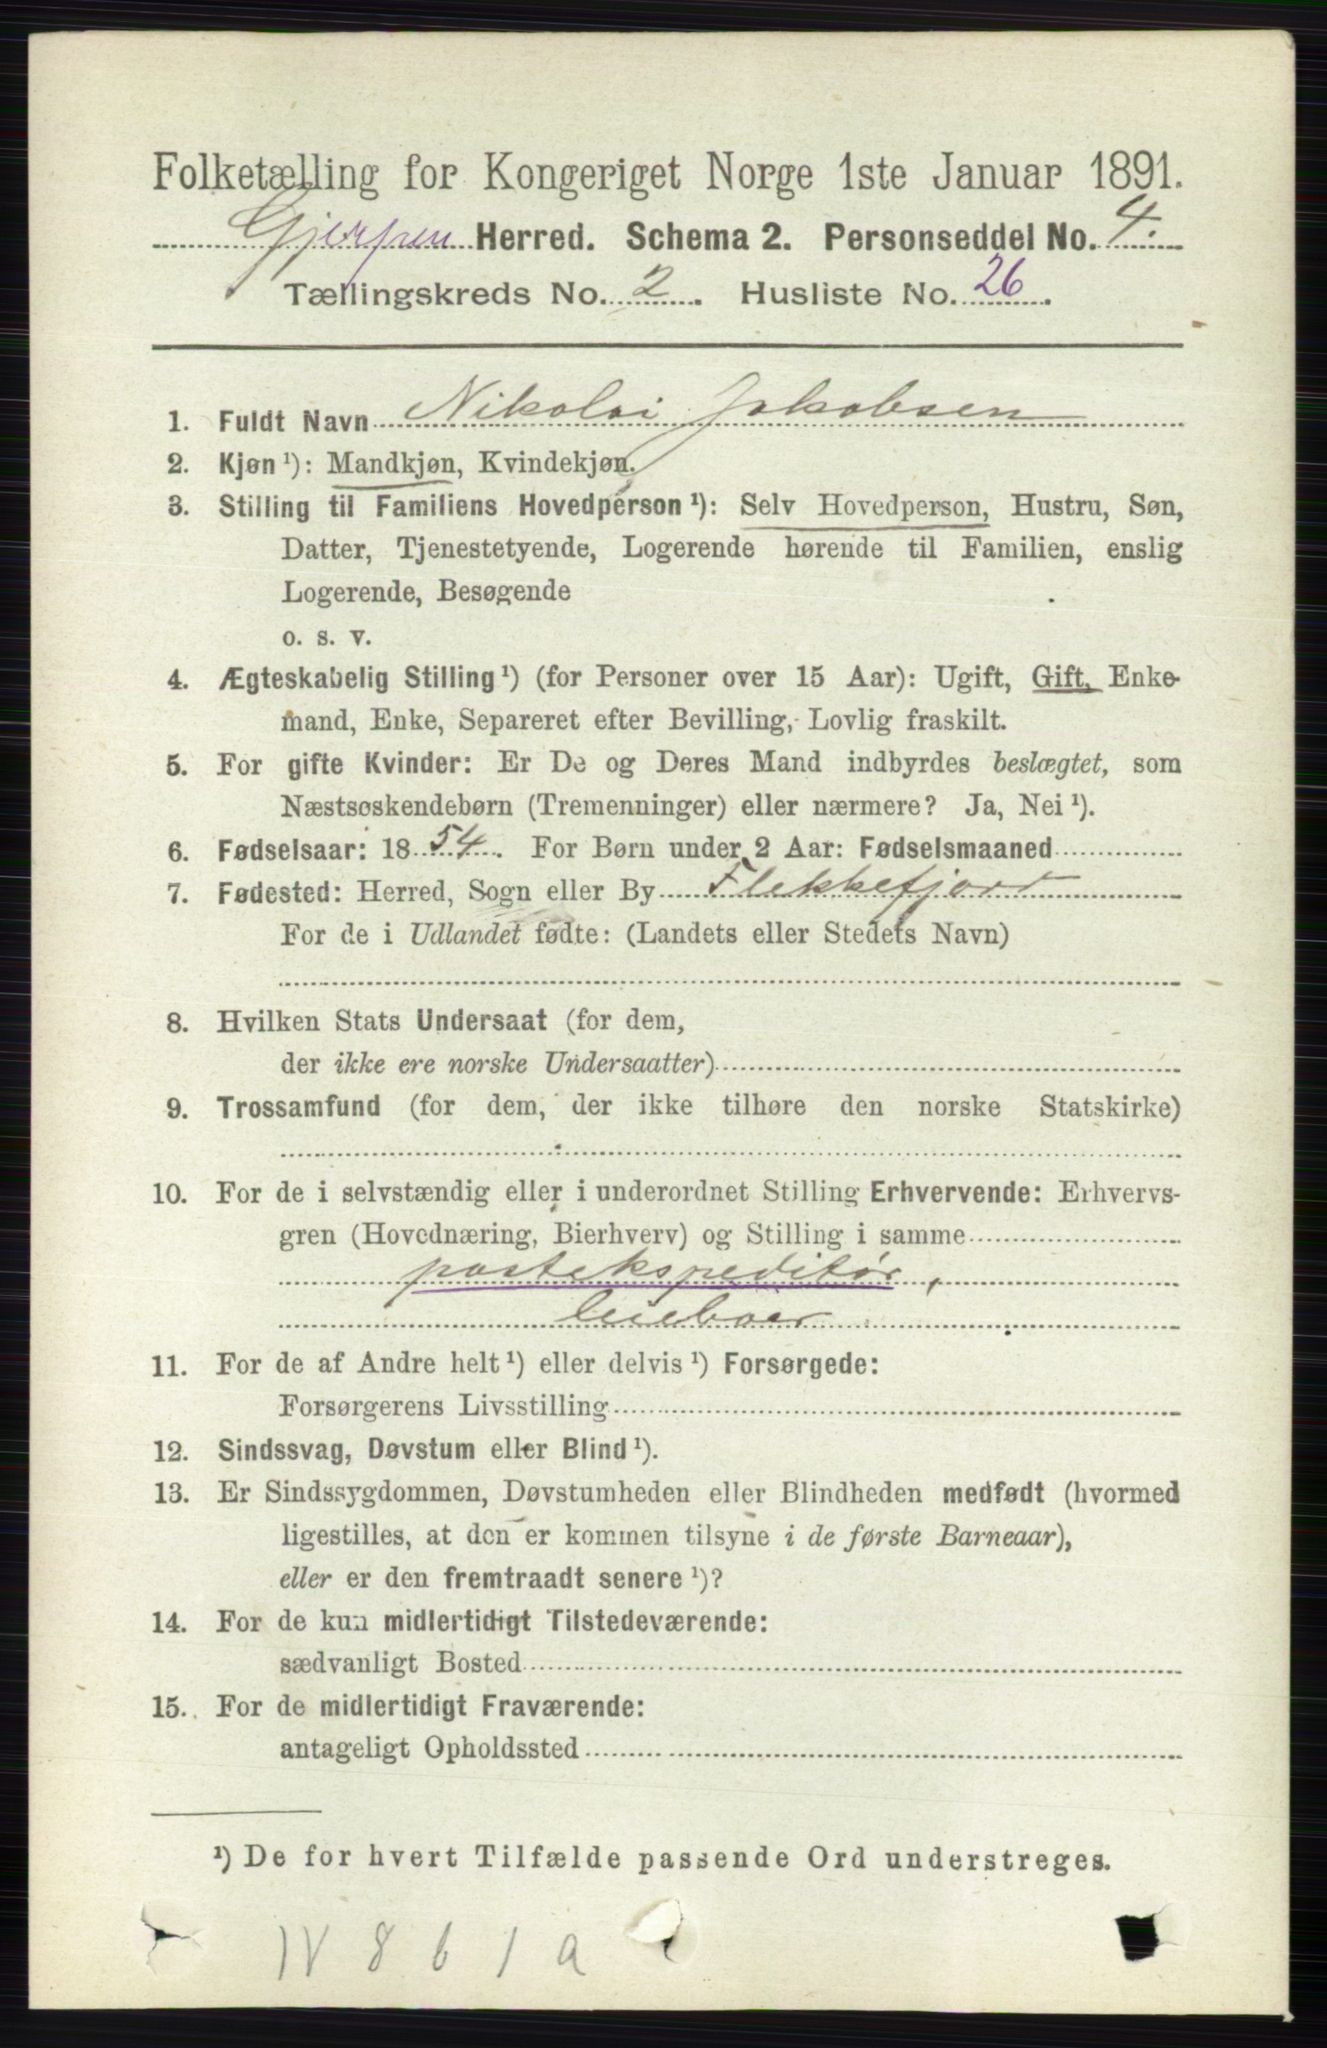 Folketælling for Kongeriget Norge 1ste Januar 1891.
Gjerpen Herred. Schema 2. Personseddel No. 4.
Tællingskreds No. 2. Husliste No. 26.
1. Fuldt Navn Nikolai Jakobsen
2. Kjøn ¹): Mandkjøn, Kvindekjøn.
3. Stilling til Familiens Hovedperson ¹): Selv Hovedperson, Hustru, Søn,
Datter, Tjenestetyende, Logerende hørende til Familien, enslig
Logerende, Besøgende
o. s. v.
4. Ægteskabelig Stilling ¹) (for Personer over 15 Aar): Ugift, Gift, Enke-
mand, Enke, Separeret efter Bevilling, Lovlig fraskilt.
5. For gifte Kvinder: Er De og Deres Mand indbyrdes beslægtet, som
Næstsøskendebørn (Tremenninger) eller nærmere? Ja, Nei ¹).
6. Fødselsaar: 1854. For Børn under 2 Aar: Fødselsmaaned
7. Fødested: Herred, Sogn eller By Flekkefjord
For de i Udlandet fødte: (Landets eller Stedets Navn)
8. Hvilken Stats Undersaat (for dem,
der ikke ere norske Undersaatter)
9. Trossamfund (for dem, der ikke tilhøre den norske Statskirke)
10. For de i selvstændig eller i underordnet Stilling Erhvervende: Erhvervs-
gren (Hovednæring, Bierhverv) og Stilling i samme
postekspeditør,
leieboer
11. For de af Andre helt ¹) eller delvis ¹) Forsørgede:
Forsørgerens Livsstilling
12. Sindssvag, Døvstum eller Blind ¹).
13. Er Sindssygdommen, Døvstumheden eller Blindheden medfødt (hvormed
ligestilles, at den er kommen tilsyne i de første Barneaar),
eller er den fremtraadt senere ¹)?
14. For de kun midlertidigt Tilstedeværende:
sædvanligt Bosted
15. For de midlertidigt Fraværende:
antageligt Opholdssted
¹) De for hvert Tilfælde passende Ord understreges.
IV 8 6 1 a